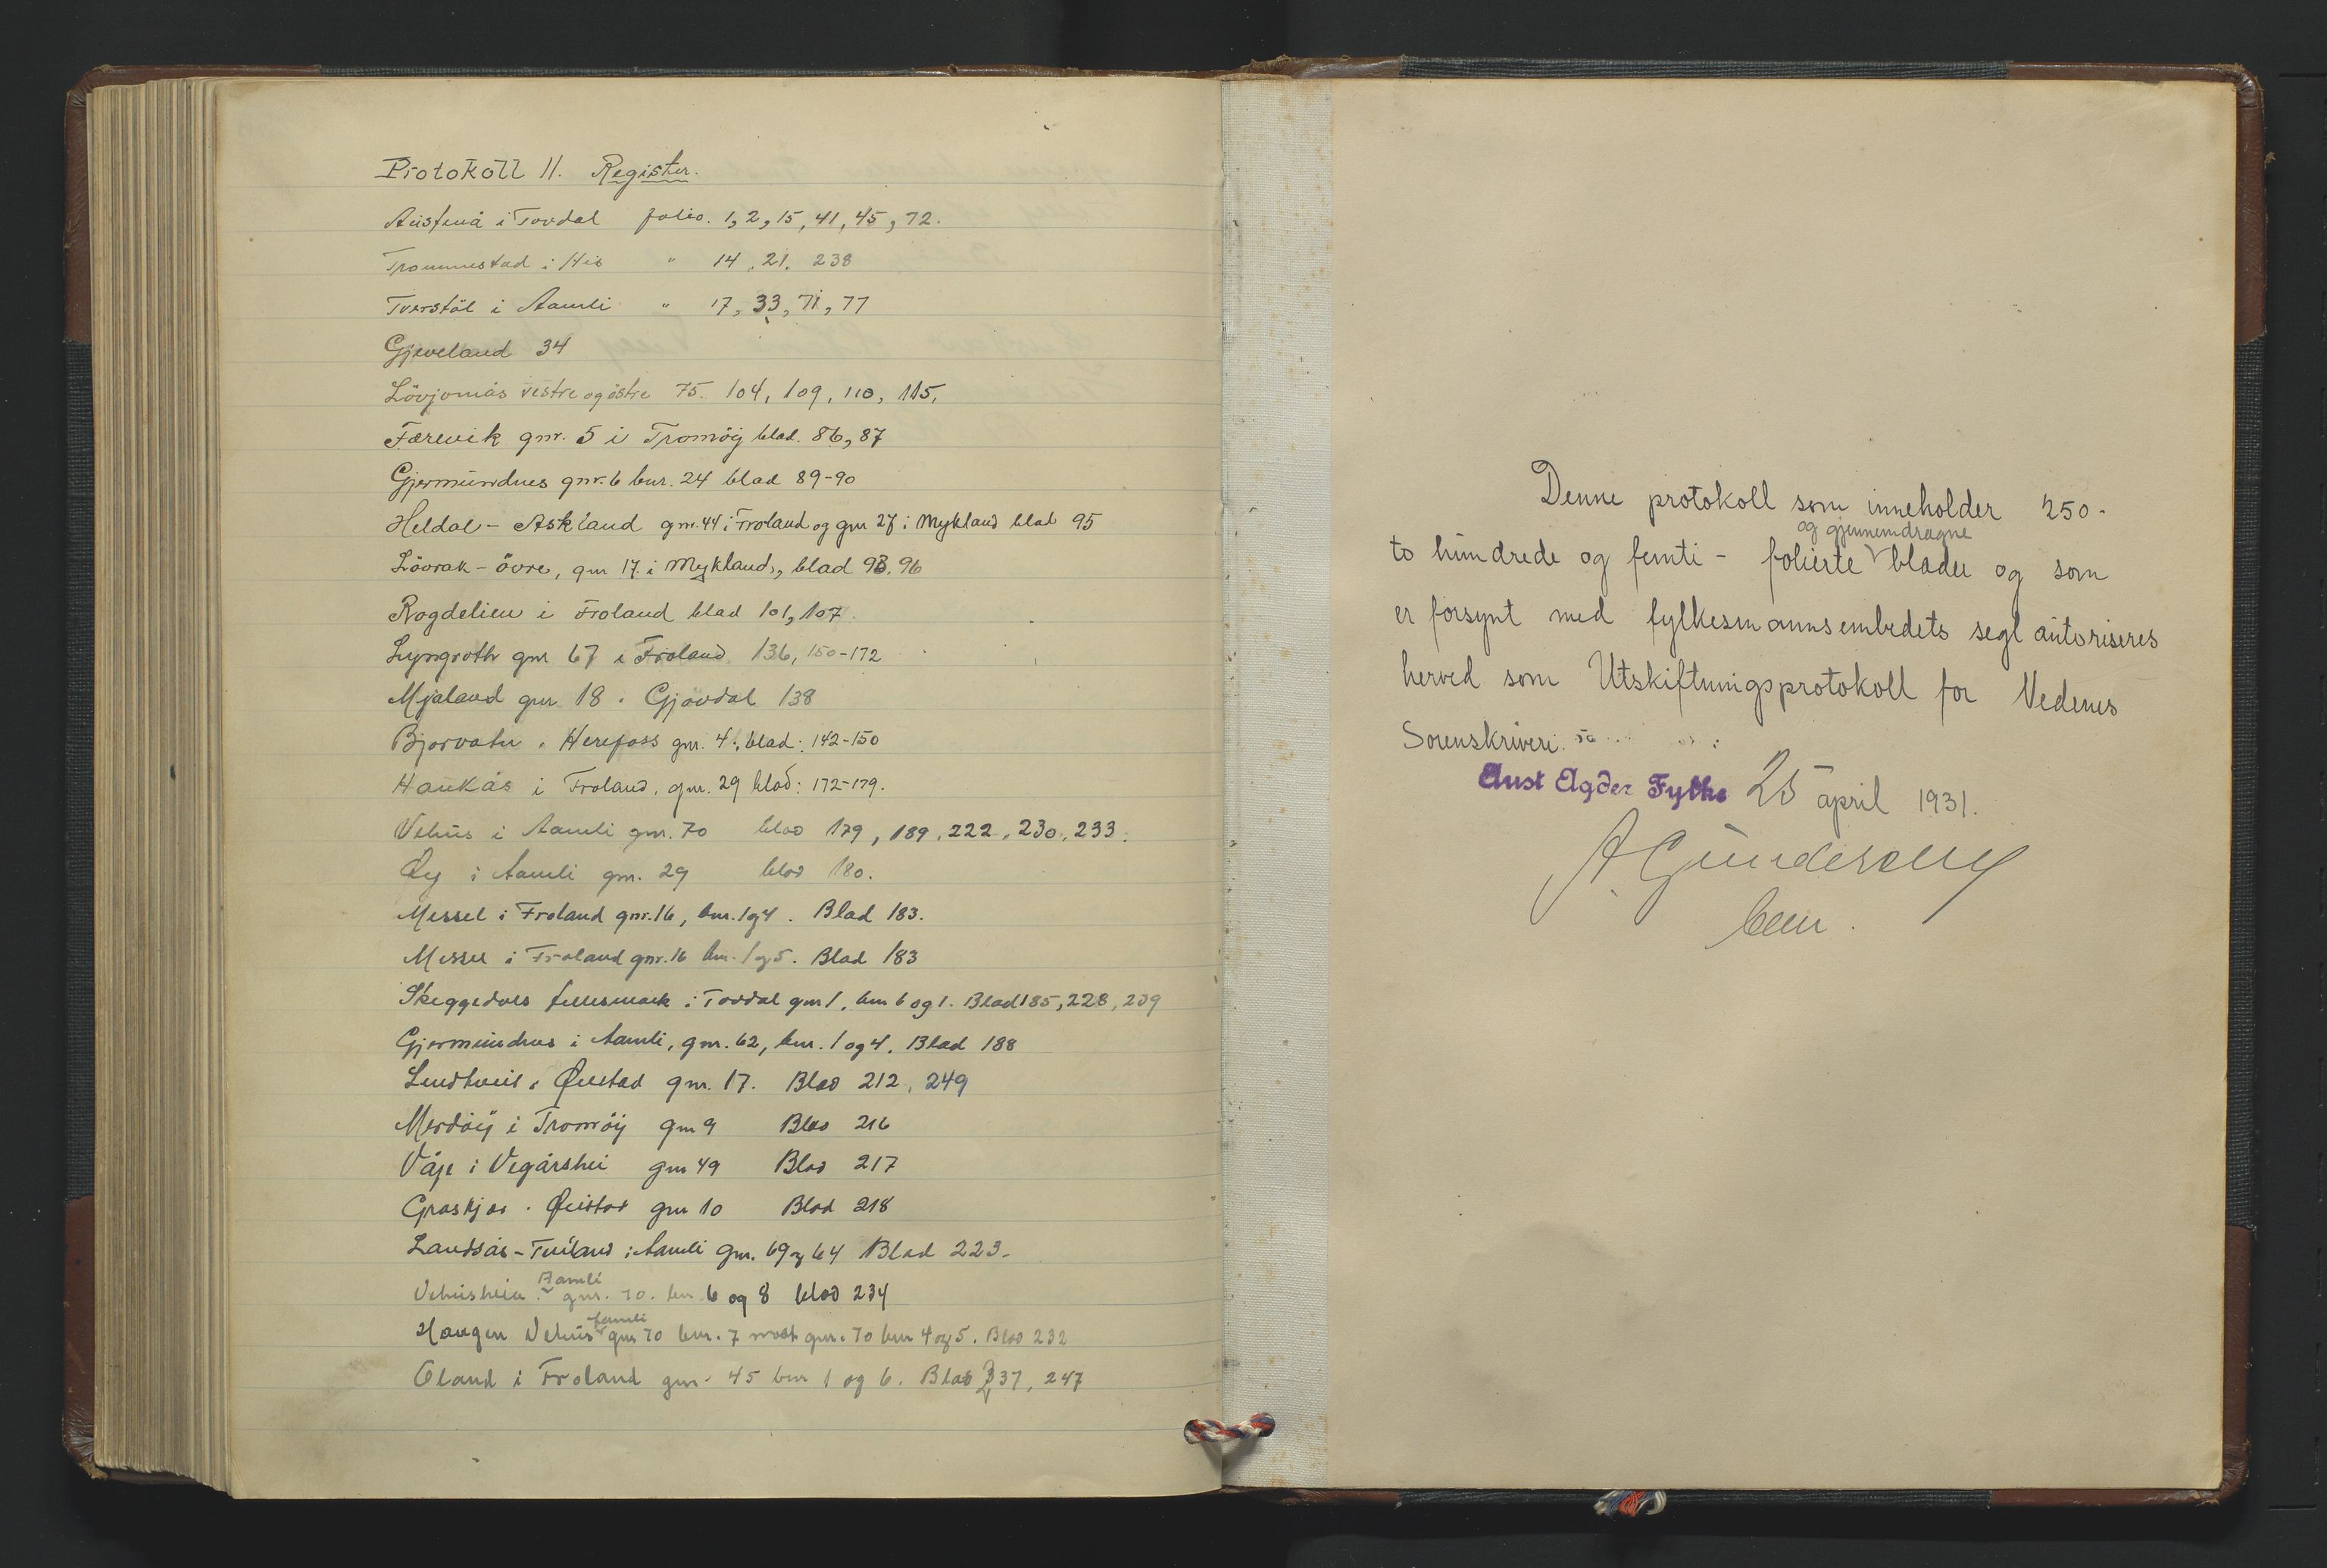 Protokoll II. Register.
Austenå i Tovdal folio. 1, 2, 15, 41, 45, 72.
Trommestad i His " 14, 21. 238
Tverstöl i Aamli " 17, 33, 71, 77
Gjeveland 34
Lövjomås vestre og östre 75. 104, 109, 110, 115,
Færevik gnr. 5 i Tromöy blad. 86, 87
Gjermundnes gnr. 6 bnr. 24 blad 89-90
Heldal - Askland gnr. 44 i Froland og gnr 27 i Mykland blad 95
Lövrak - övre, gnr 17 i Mykland, blad 93. 96
Rogdelien i Froland blad 101, 107.
Lyngroth gnr 67 i Froland 136, 150-172
Mjaland gnr 18 i Gjøvdal 138
Bjorvatn i Herefoss gnr. 4, blad: 142-150
Haukås i Froland, gnr. 29 blad: 172-179.
Vehus i Aamli gnr. 70 blad 179, 189, 222, 230, 233.
Øy i Aamli gnr. 29 blad 180.
Messel i Froland gnr. 16, bnr. 1 og 4. Blad 183.
Messel i Froland gnr. 16 bnr. 1 og 5. Blad 183
Skeggedals fellesmark i Tovdal gnr 1, bnr 6 og 1. Blad 185, 228, 239
Gjermundnes i Aamli, gnr. 62, bnr. 1 og 4. Blad 188
Lindtveit i Øiestad gnr. 17. Blad 212, 249
Merdöy i Tromöy gnr 9 Blad 216
Våje i Vegårshei gnr 49 Blad 217
Graskjær i Øiestad gnr 10 Blad 218
Landsås - Tveiland i Aamli gnr. 69 og 64 Blad 223.
Aamli
Vehusheia i gnr. 70. bnr 6 og 8 blad 234
Aamli
Haugen Vehus gnr 70 bnr. 7 mot gnr. 70 bnr 4 og 5. Blad 232
Øland i Froland gnr. 45 bnr 1 og 6. Blad 237, 247
Denne protokoll som inneholder 250-
og gjennemdragne
to hundrede og femti - folierte blader og som
er forsynt med fylkesmannsembedets segl autoriseres
herved som Utskiftningsprotokoll for Nedenes
Sorenskriveri.
Aust Agder Fylke 25 april 1931.
A Gundersen